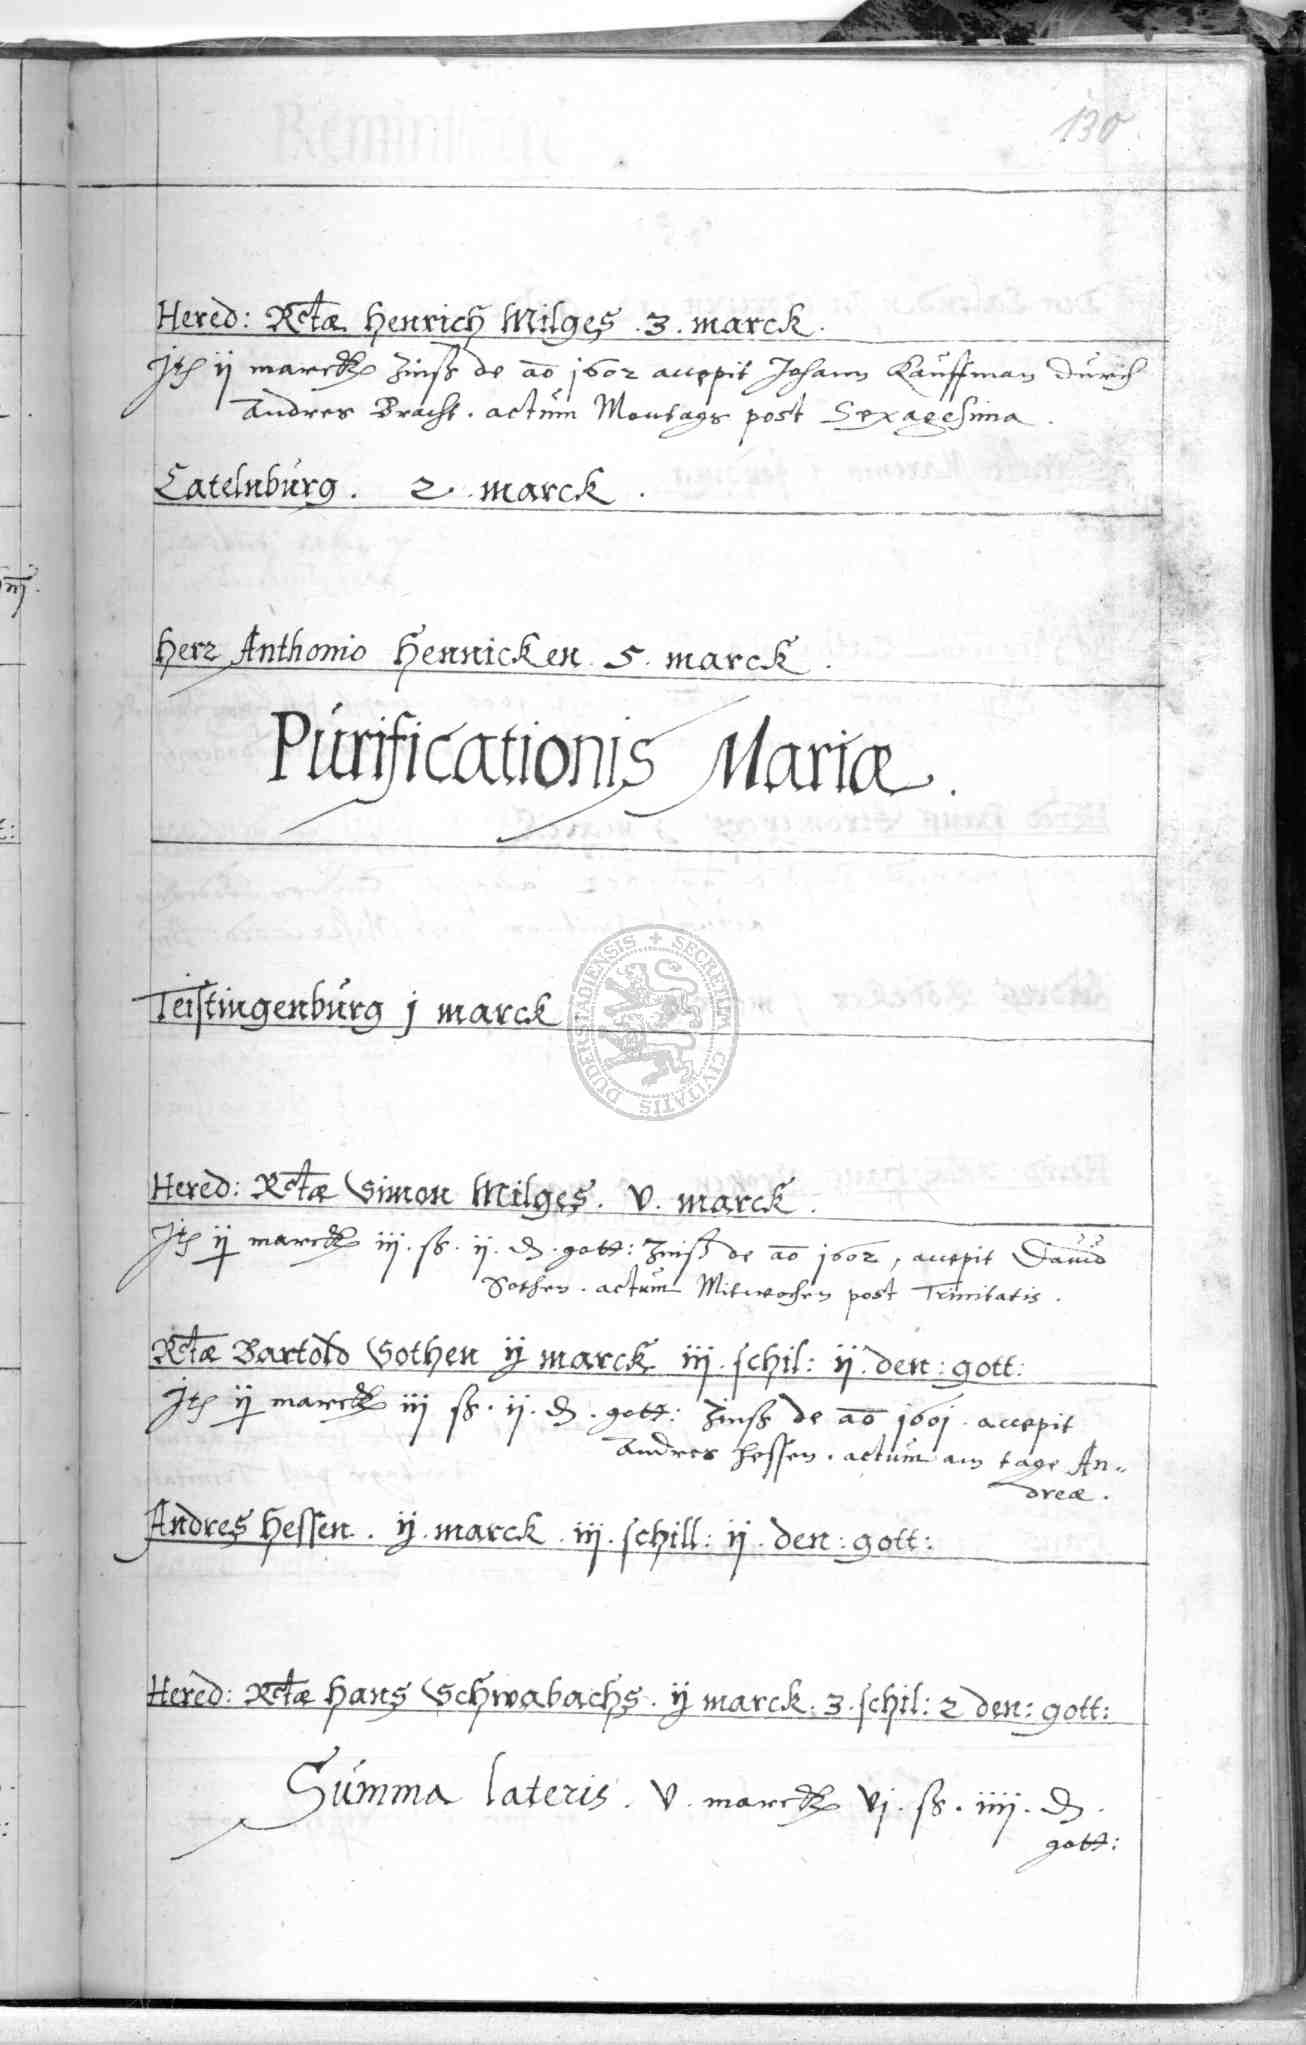 130
Hered: Rctæ Henrich Milges . 3 . marck .
Jtē ij marck Zinß de ao 1602 accepit Johann Kauffman durch
Andres Bracht . actum Montags post Sexagesima .
Catelnburg . 2 marck .
Herr Anthonio Hennicken . 5 . marck .
Purificationis Mariæ .
Teistingenburg j marck
DUDERSTADIENSIS + SECRETUM CIVITATIS
Hered: Rctæ Simon Milges . v . marck .
Jtē ij marck iij . ß . ij . d . gott: Zinß de ao 1602 , accepit David
Sothen . actum Mitwochen post Trinitatis .
Rctæ Bartold Sothen ij marck iij . schil: ij . den: gott:
Jtē ij marck iij ß . ij . d . gott: Zinß de ao 1601 . accepit
Andres Hessen . actum am tage An-
dreæ .
Andres Hessen . ij . marck . iij . schill: ij . den: gott:
Hered: Rctæ Hans Schwabachs . ij marck . 3 . schil: 2 den: gott:
Summa lateris . v . marck vj . ß . iiij . d .
gott: